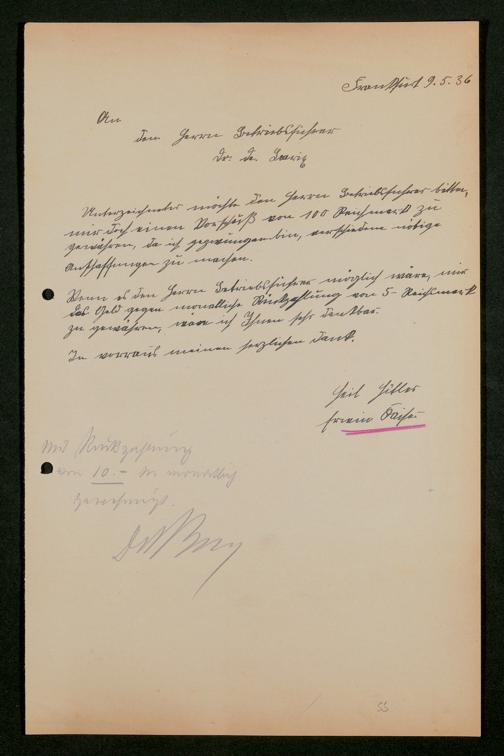 Frankfurt 9.5.36
An
den Herrn Betriebsführer
Dr. de Bary
Unterzeichneter möchte den Herrn Betriebsführer bitten,
mir doch einen Vorschuß von 100 Reichmark zu
gewähren, da ich gezwungen bin, verschiedene nötige
Anschaffungen zu machen.
Wenn es dem Herrn Betriebsführer möglich wäre, mir
das Geld gegen monatliche Rückzahlung von 5- Reichsmark
zu gewähren, wäre ich Ihnen sehr dankbar.
In vorraus meinen herzlichen Dank.
Heil Hitler
Erwin
Mit Rückzahlung
von 10.- M monatlich
genehmigt.
55